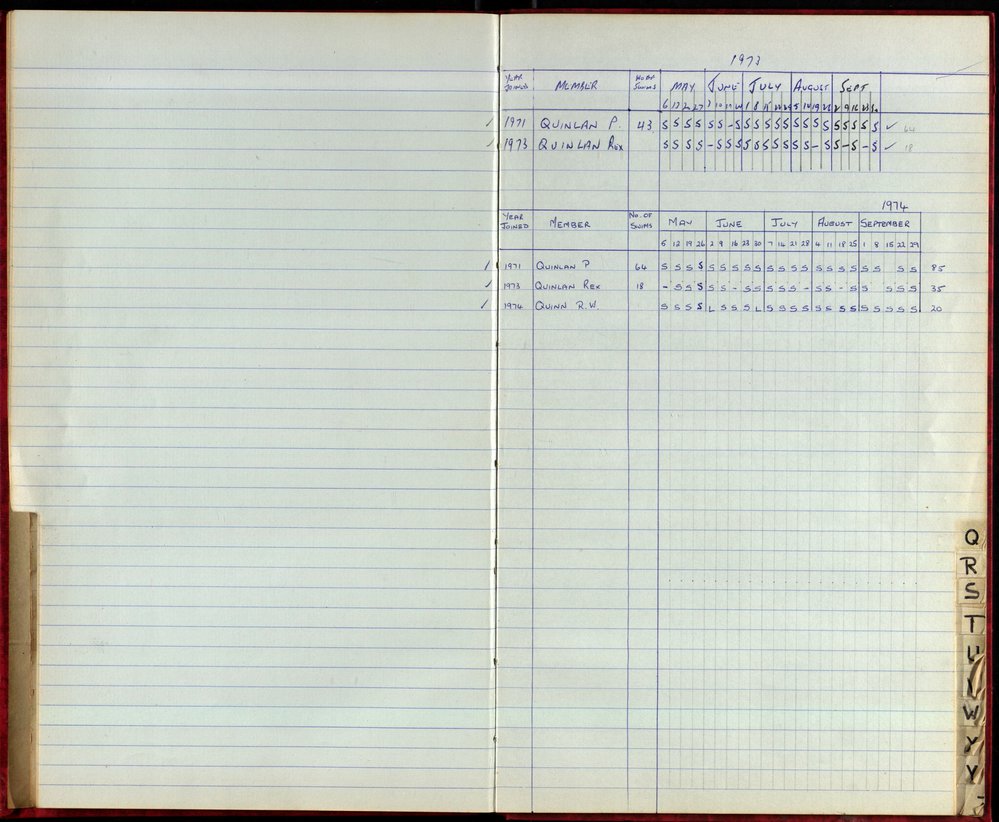 1973
YEAR JOINED MEMBER NO OF SWIMS MAY JUNE JULY AUGUST SEPT
6 13 20 27 3 10 17 24 1 8 15 22 29 5 12 19 26 2 9 16 23 30
1971 QUINLAN P. 43 S S S S S S - S S S S S S S S S S S S S S S ✓ 64
1973 QUINLAN REX S S S S - S S S S S S S S S S - S S - S - S ✓ 18
1974
YEAR JOINED MEMBER NO. OF SWIMS MAY JUNE JULY AUGUST SEPTEMBER
5 12 19 26 2 9 16 23 30 7 14 21 28 4 11 18 25 1 8 15 22 29
1971 QUINLAN P 64 S S S S S S S S S S S S S S S S S S S S S 85
1973 QUINLAN REX 18 - S S S S S - S S S S S - S S - S S S S S 35
1974 QUINN R.W. S S S S L S S S L S S S S S S S S S S S S S 20
Q
R
S
T
U
V
W
X
Y